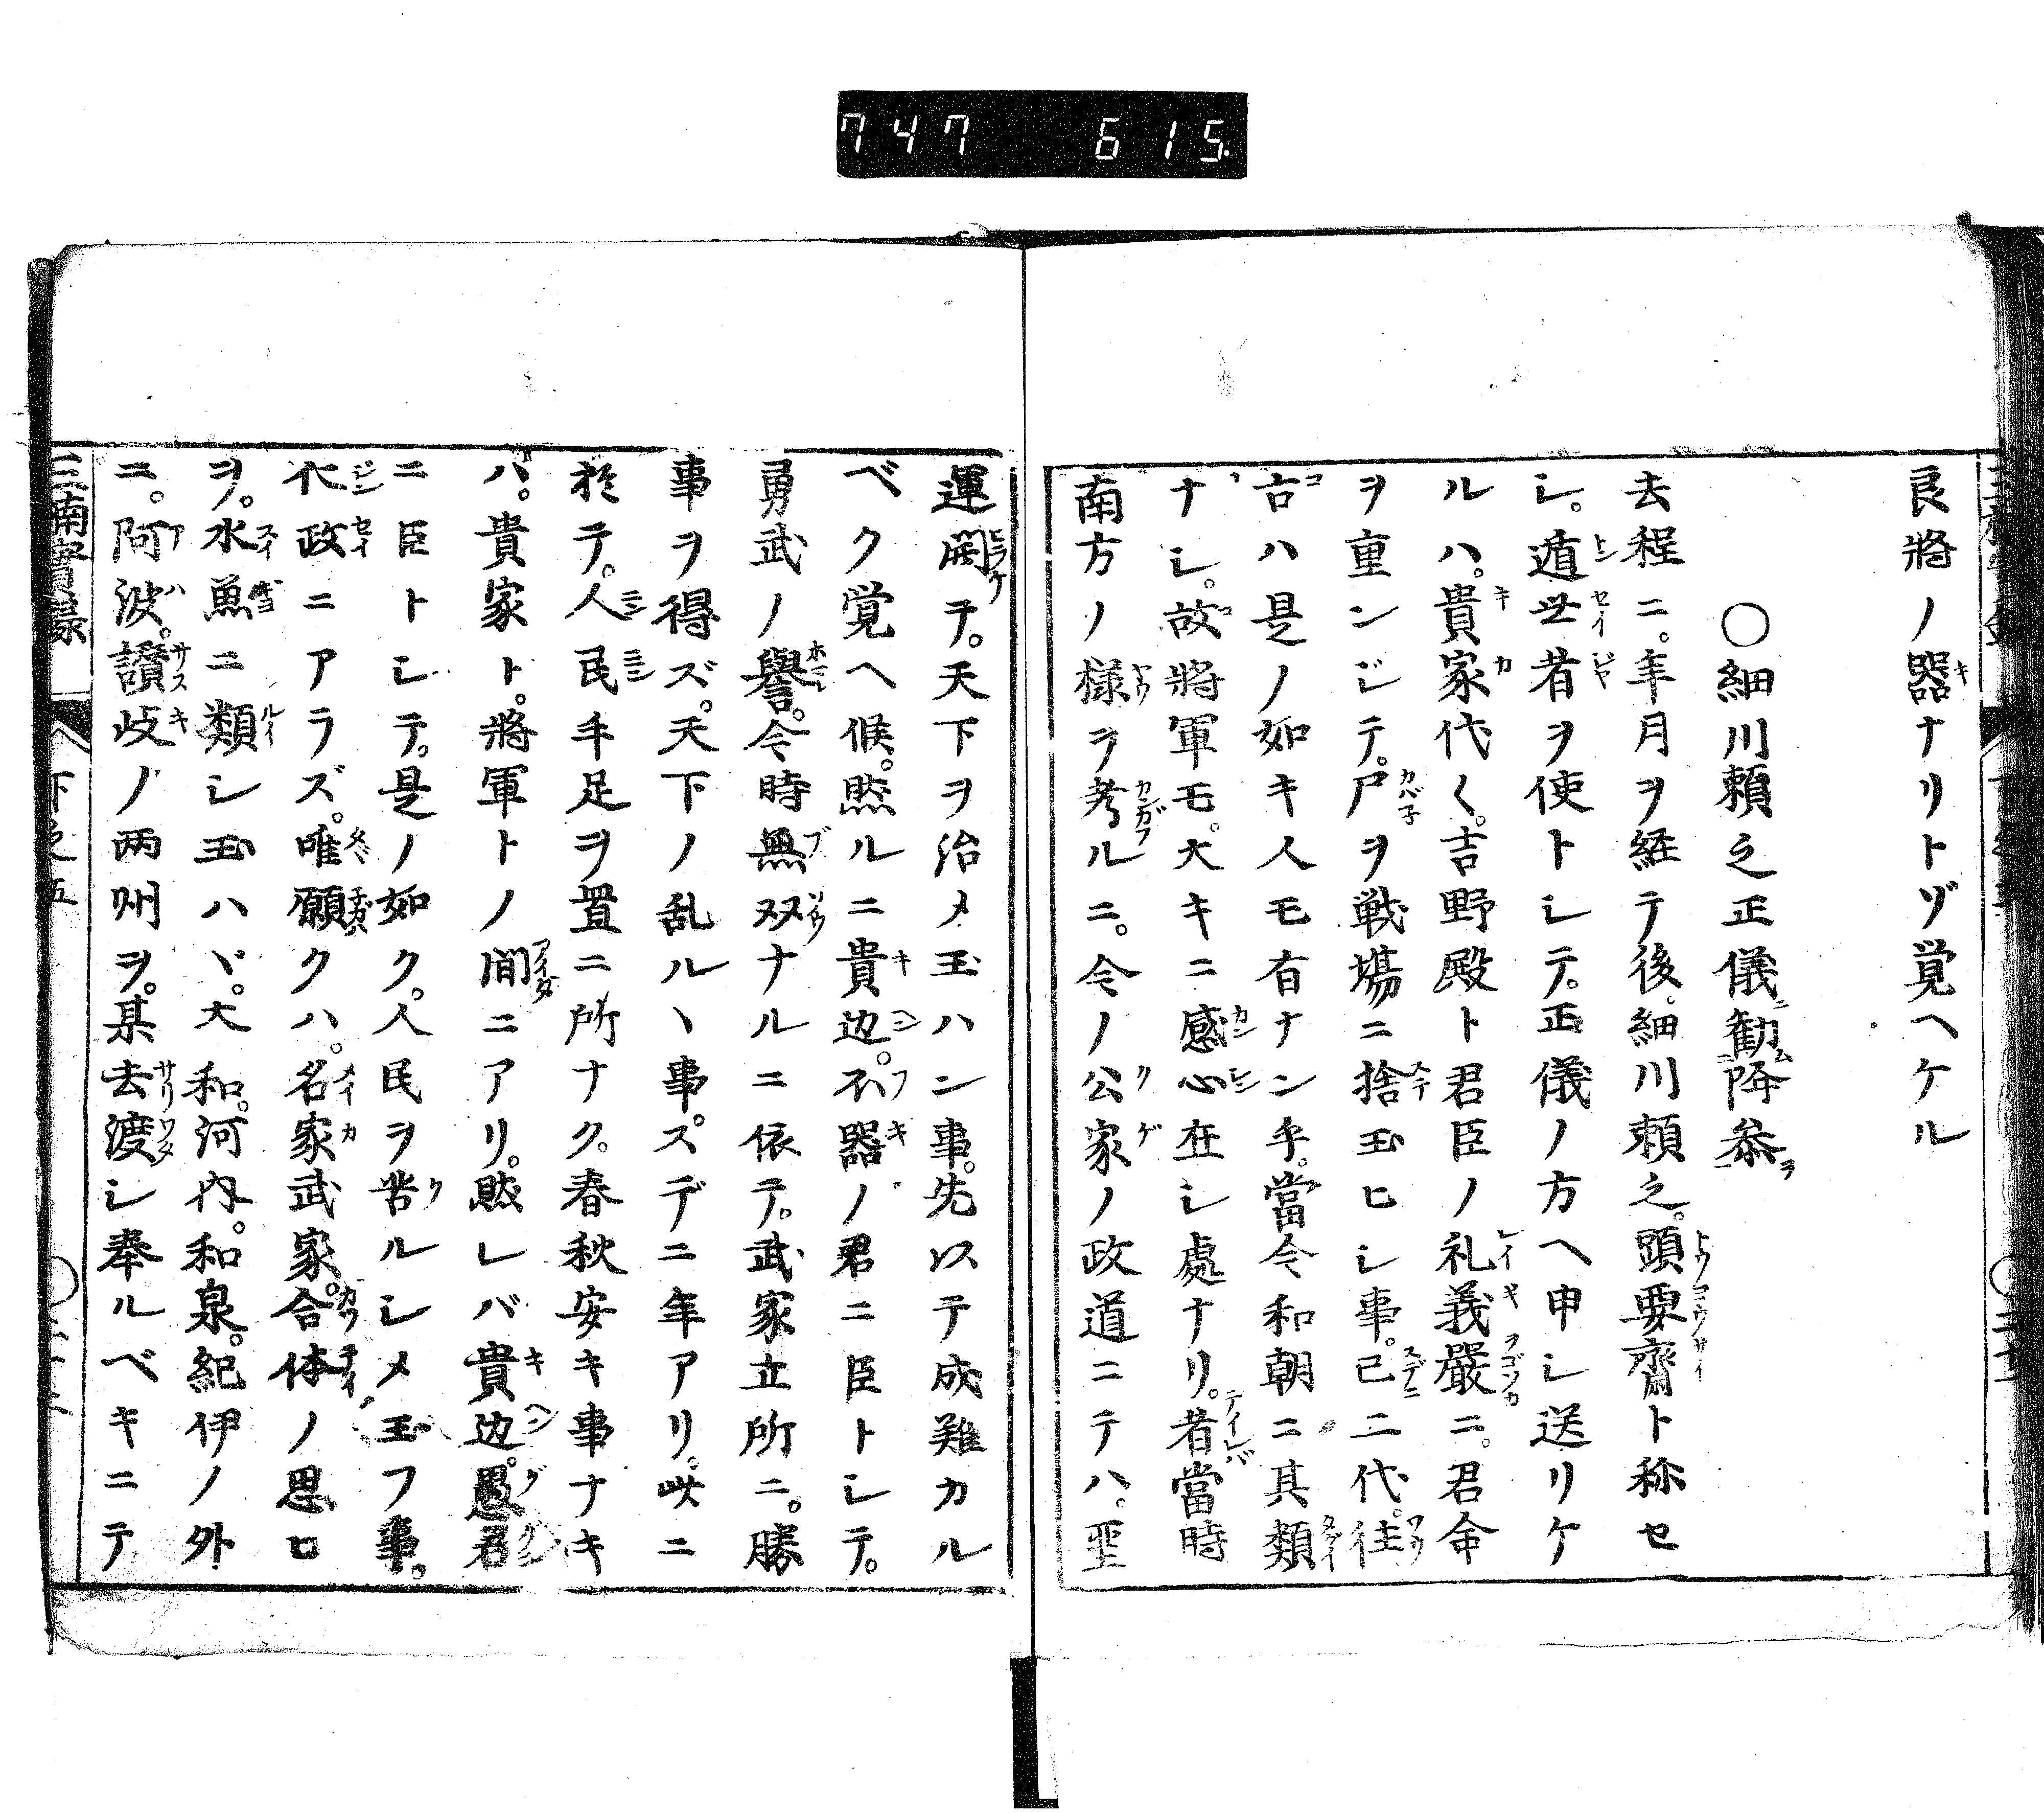 747 615
良將ノ器ナリトゾ覚ヘケル
○細川頼之正儀ニ勧ム降参ヲ
去程ニ。年月ヲ経テ後。細川頼之。頭要齋ト称セ
シ。遁世者ヲ使トシテ。正儀ノ方ヘ申シ送リケ
ルハ。貴家代〱。吉野殿ト君臣ノ礼義嚴ニ。君命
ヲ重ンジテ。尸ヲ戦場ニ捨玉ヒシ事。已ニ二代。往
古ハ是ノ如キ人モ有ナン乎。當今和朝ニ其類
ナシ。故將軍モ。大キニ感心在シ處ナリ。者當時
南方ノ様ヲ考ルニ。今ノ公家ノ政道ニテハ。聖
運開ヲ。天下ヲ治メ玉ハン事。先以テ成難カル
ベク覚ヘ候。然ルニ貴辺。不器ノ君ニ臣トシテ。
勇武ノ譽。今時無双ナルニ依テ。武家立所ニ。勝
事ヲ得ズ。天下ノ乱ルヽ事。スデニ年アリ。此ニ
於テ。人民手足ヲ置ニ所ナク。春秋安キ事ナキ
ハ。貴家ト。將軍トノ間ニアリ。然レバ貴辺。愚君
ニ臣トシテ。是ノ如ク。人民ヲ苦ルシメ玉フ事。
代政ニアラズ。唯願クハ。名家武家。合体ノ思ヒ
ヲ。水魚ニ類シ玉ハヾ。大和。河内。和泉。紀伊ノ外
ニ。阿波。讃岐ノ両州ヲ。某去渡シ奉ルベキニテ
三南實録 下之五